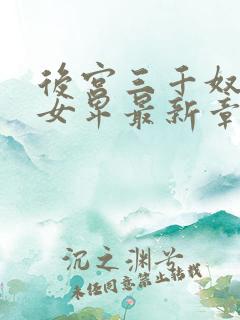 後宫三千奴
女卑最新章
沉之渊兮
未经同意禁止转载